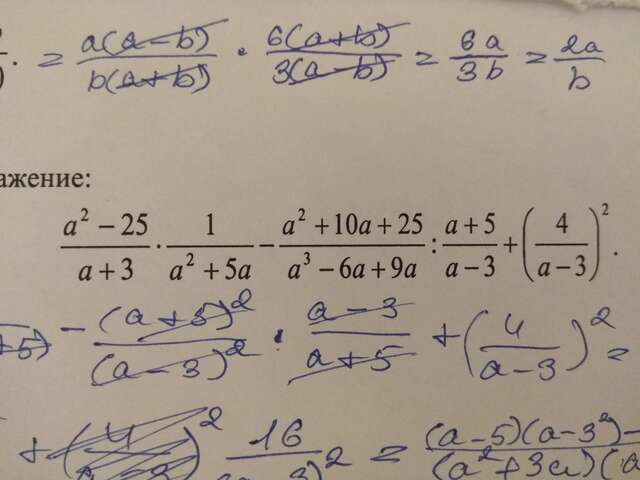 ). = a(a-b)/b(a+b) · 6(a+b)/3(a-b) = 6a/3b = 2a/b
ажение:
(a² - 25)/(a + 3) · 1/(a² + 5a) - (a² + 10a + 25)/(a³ - 6a + 9a) : (a + 5)/(a - 3) + (4/(a - 3))².
+5) - (a+5)²/(a-3)² · (a-3)/(a+5) + (4/(a-3))² =
+ 16/ ² = (a-5)(a-3²)-/(a²+3a)(a